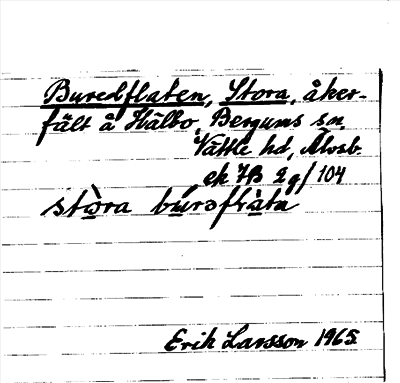 Buredflaten, Stora, åker-
fält å Hålbo, Bergums sn,
Vättle hd, Älvsb.
ek 7B 2g/104
stòra bùrəflàta
Erik Larsson 1965